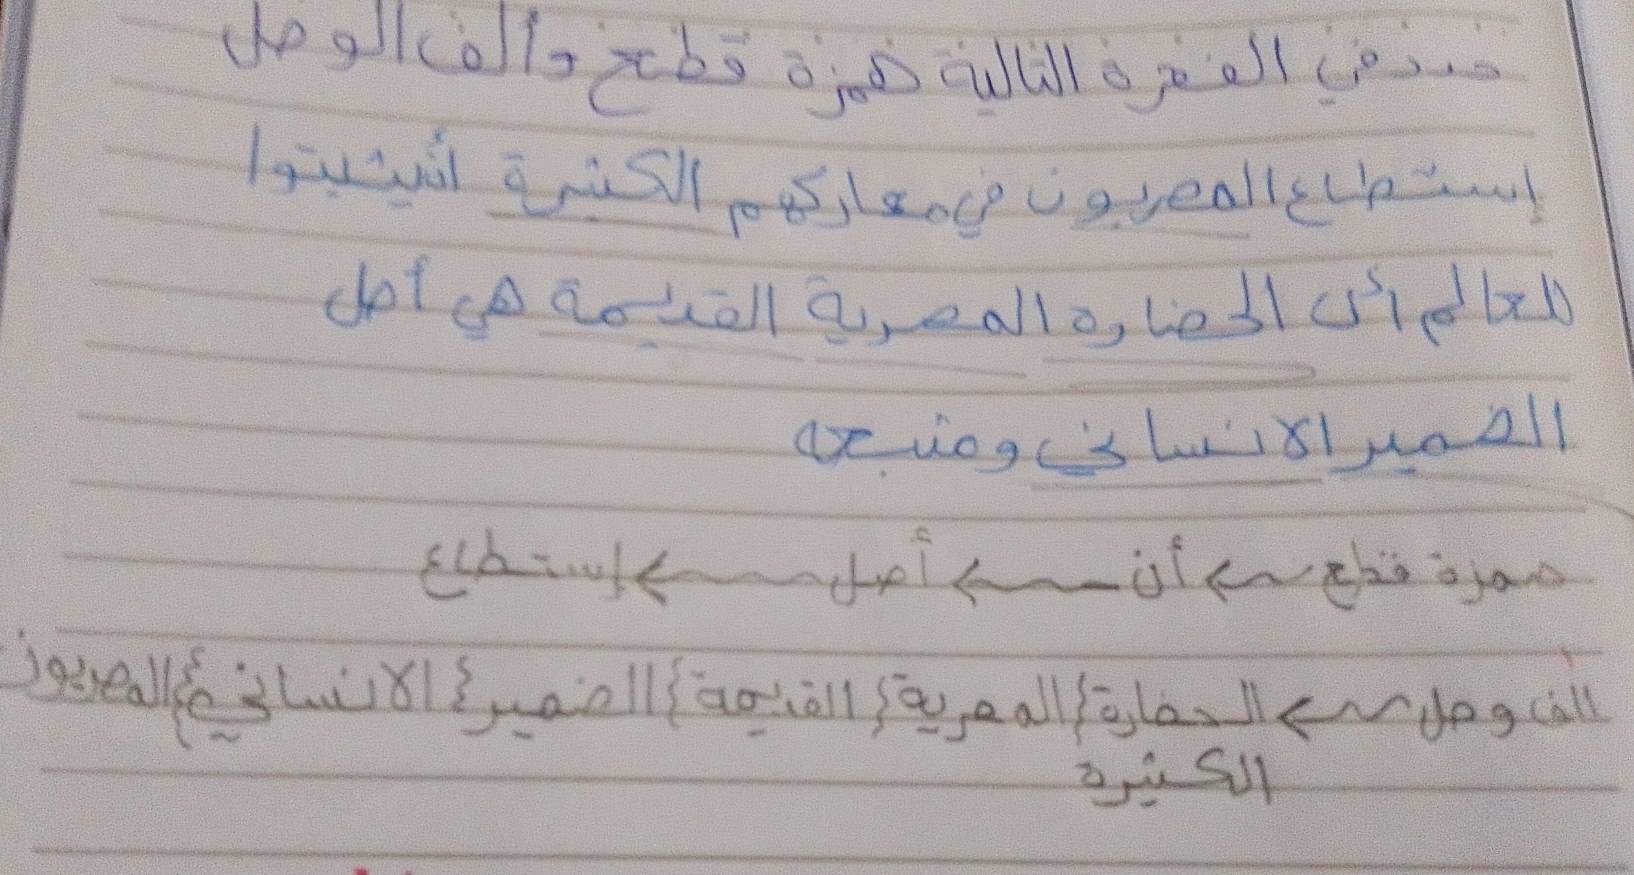 من الفقرة التالية همزة قطع والف الوصل
إستطاع المصريون في معاركهم الكثيرة أن يثبتوا
للعالم أن الحضارة المصرية القديمة هي أصل
الضمير الانساني ومنبعه
همزة قطع ← أن ← أصل ← إستطاع
الف وصل ← الحضارة } المصرية } القديمة } الضمير } الانساني } المصريون
الكثيره